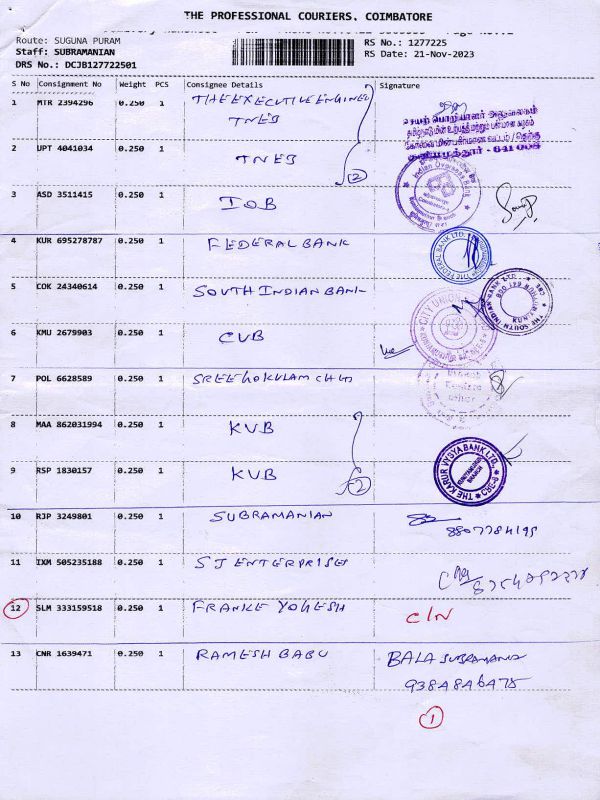 THE PROFESSIONAL COURIERS. COIMBATORE
Route: SUGUNA PURAM
Staff: SUBRAMANIAN
DRS No.: DCJB127722501
RS No.: 1277225
RS Date: 21-Nov-2023
S No Consignment No Weight PCS Consignee Details Signature
1 MTR 2394296 0.250 1 THE EXECUTIVE ENGINEER
TNEB
2 UPT 4041034 0.250 1 TNEB
(2)
3 ASD 3511415 0.250 1 IOB
Indian Overseas Bank
4 KUR 695278787 0.250 1 FEDERAL BANK
THE FEDERAL BANK LTD.
5 COK 24340614 0.250 1 SOUTH INDIAN BANK
THE SOUTH INDIAN BANK LTD.
6 KMU 2679903 0.250 1 CUB
CITY UNION
7 POL 6628589 0.250 1
8 MAA 862031994 0.250 1 KVB
9 RSP 1830157 0.250 1 KVB
(2)
THE KARUR VYSYA BANK LTD.
BRANCH
10 RJP 3249801 0.250 1 SUBRAMANIAN
8807784195
11 IXM 505235188 0.250 1 SJ ENTERPRISES
12 SLM 333159518 0.250 1 FRANKE YOGESH C/N
13 CNR 1639471 0.250 1 RAMESH BABU
9384846475
1